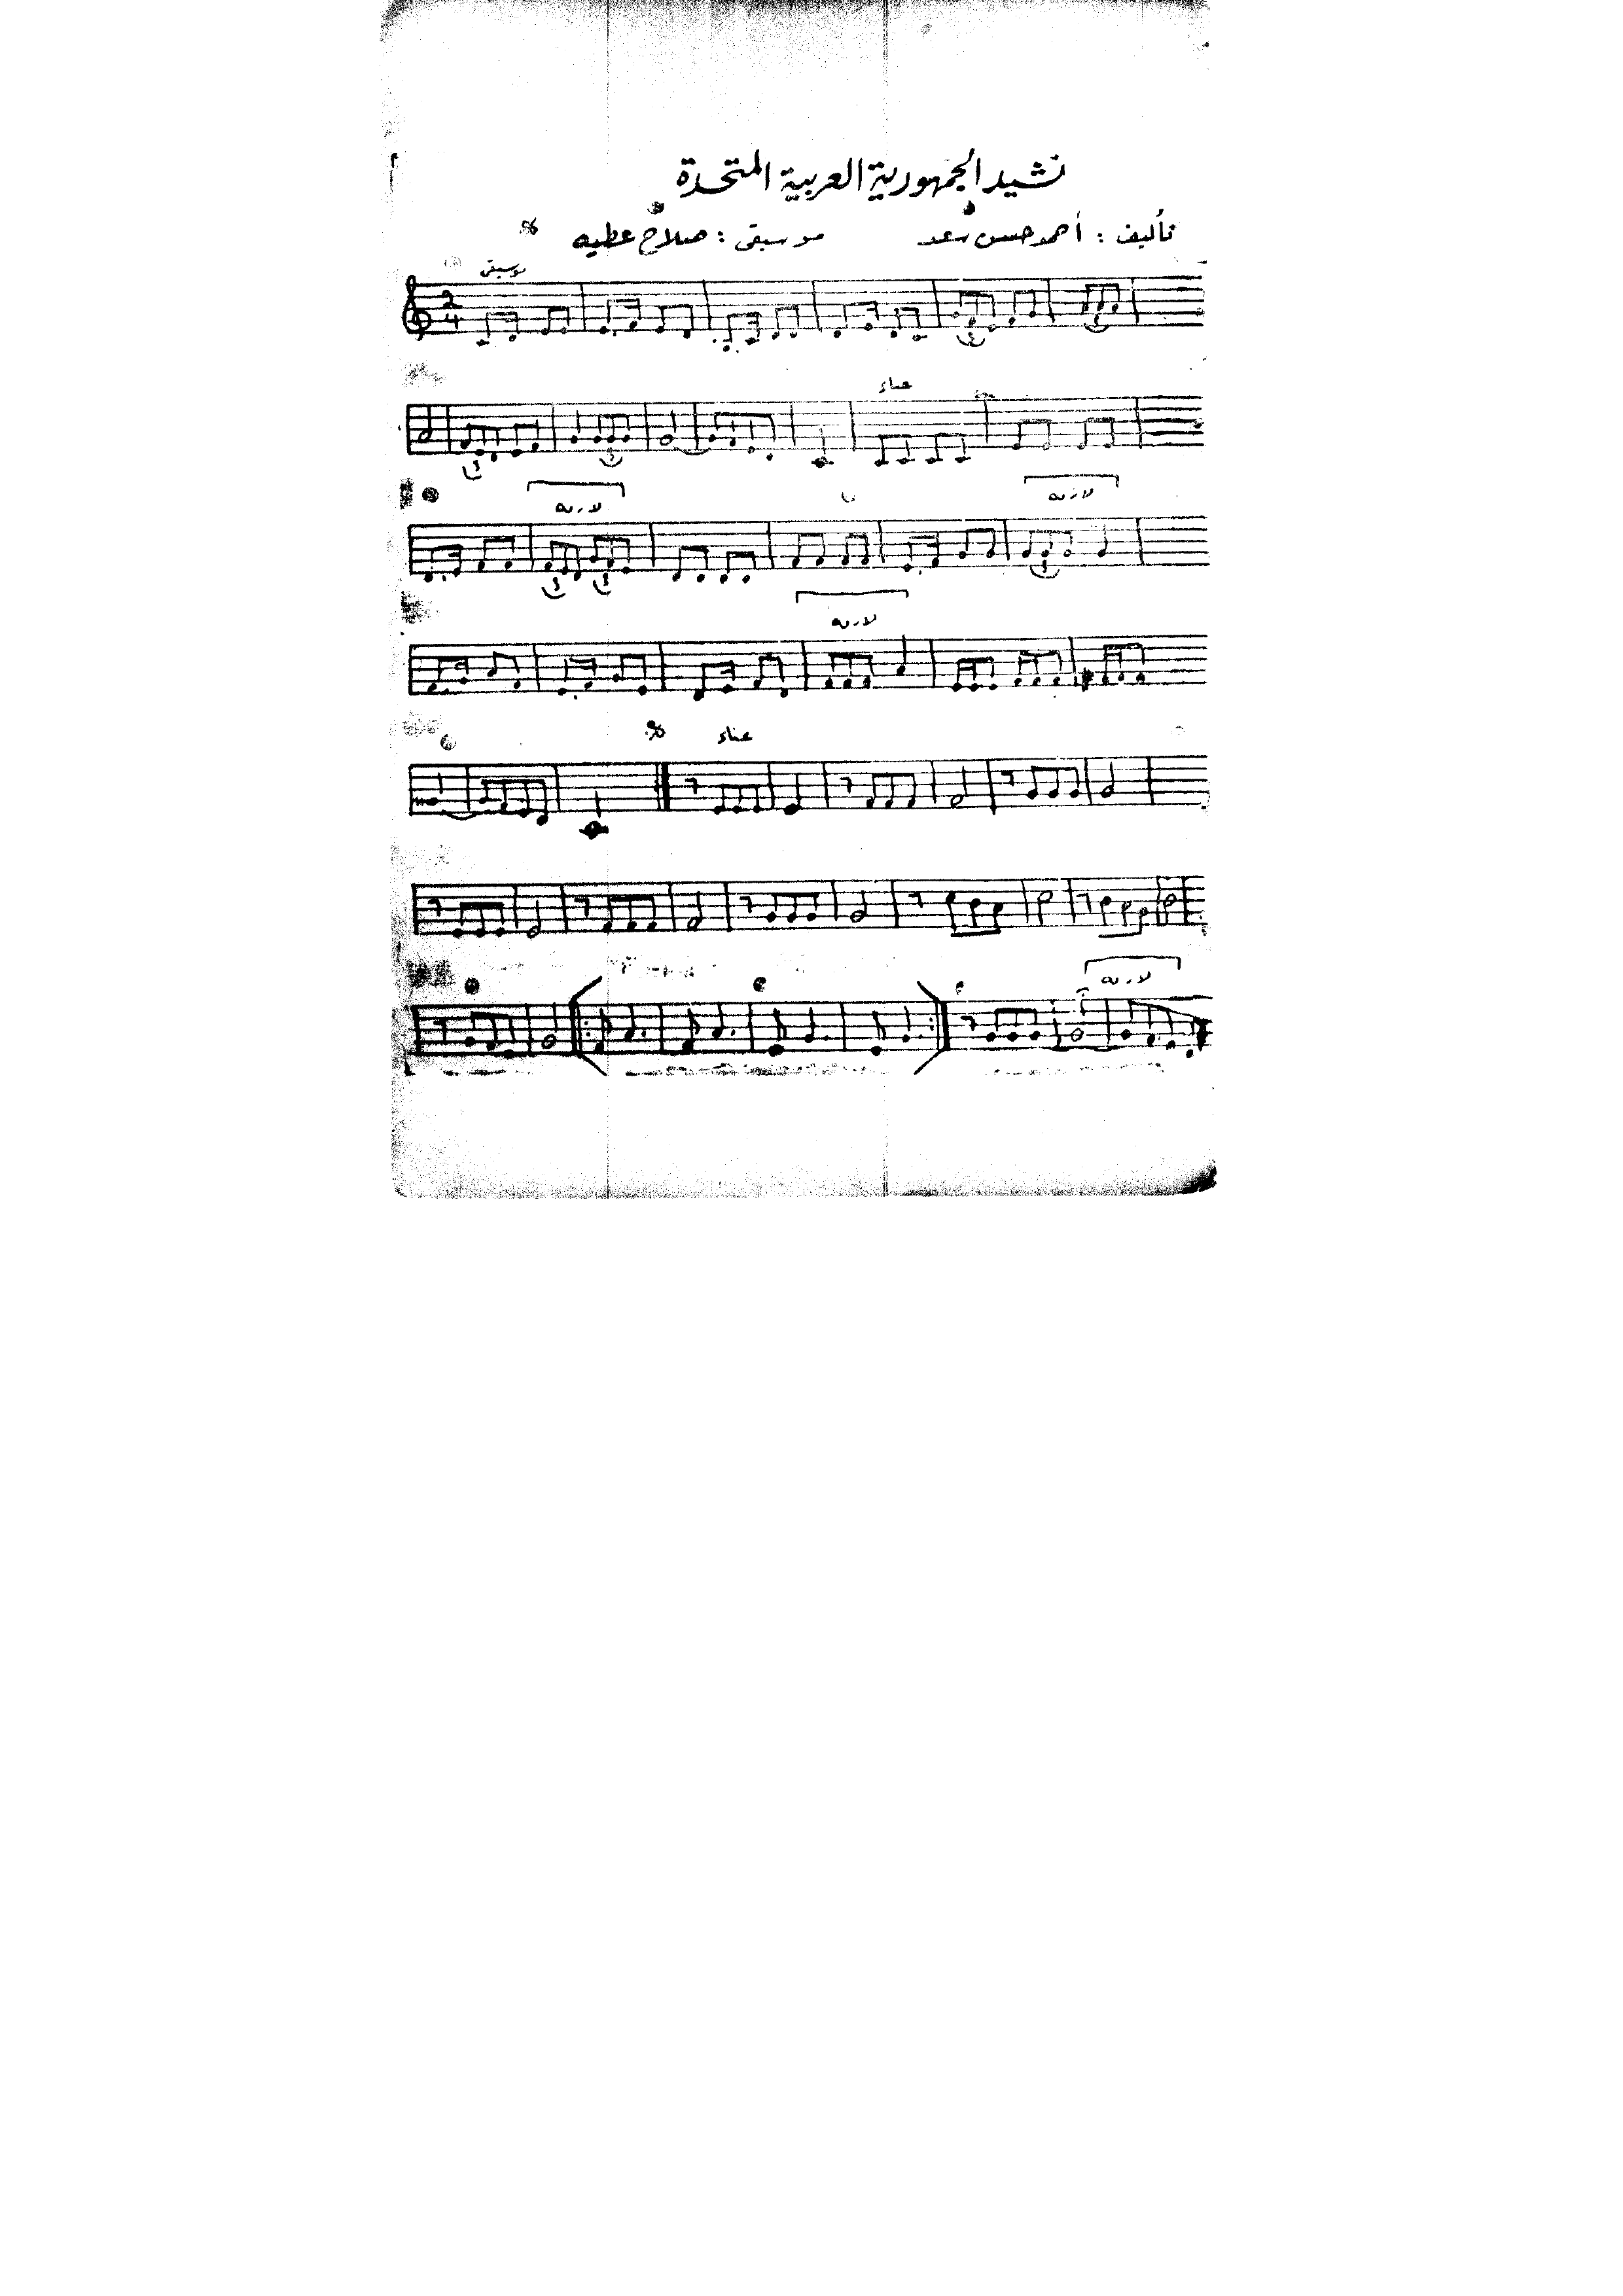 نشيد الجمهورية العربية المتحدة
تأليف : أحمد حسن سعد موسيقى : صلاح عطيه
موسيقى
2
4
غناء
لازمه لازمه
لازمه
غناء
لازمه